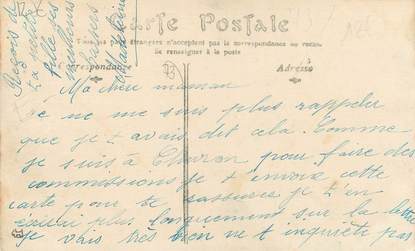 Carte Postale
Tous les pays étrangers n'acceptent pas la correspondance au recto.
Se renseigner à la poste
Correspondance
Adresse
Ma chère maman
Je ne me suis plus rappeler
que je t avais dit cela. Comme
je suis à pour faire des
commissions je t envoie cette
carte pour te rassurer je t'en
écrirai plus longuement sur la lettre
je vais très bien ne t inquiète pas
Reçois de
ta petite
fille ses
meilleurs
baisers
Madeleine